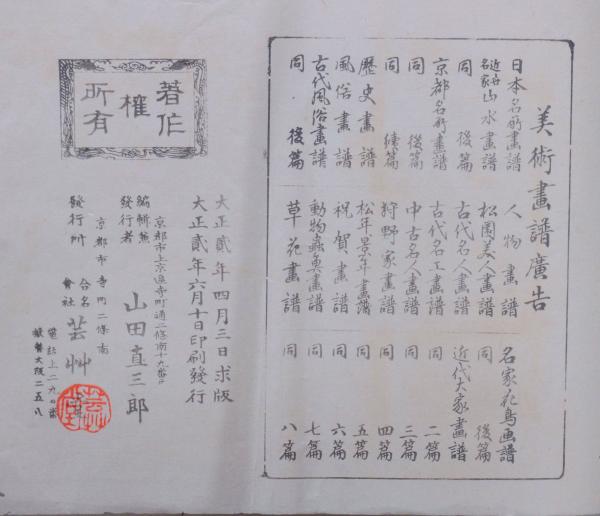 美術畫譜廣告
日本名所畫譜
近古名家山水畫譜
同 後篇
京都名所畫譜
同 後篇
同 續篇
歷史畫譜
風俗畫譜
古代風俗畫譜
同 後篇
人物畫譜
松園美人畫譜
古代名人畫譜
古代名工畫譜
中古名人畫譜
狩野家畫譜
松年景年畫譜
祝賀畫譜
動物蟲魚畫譜
草花畫譜
名家花鳥画譜
同 後篇
近代大家畫譜
同 二篇
同 三篇
同 四篇
同 五篇
同 六篇
同 七篇
同 八篇
著作
權
所有
大正貳年四月三日求版
大正貳年六月十日印刷發行
京都市上京區寺町通二條南十九番戶
編輯兼發行者 山田直三郎
京都市寺町二條南
發行所 合名會社 芸艸堂
電話上二九〇番
振替大阪二五八